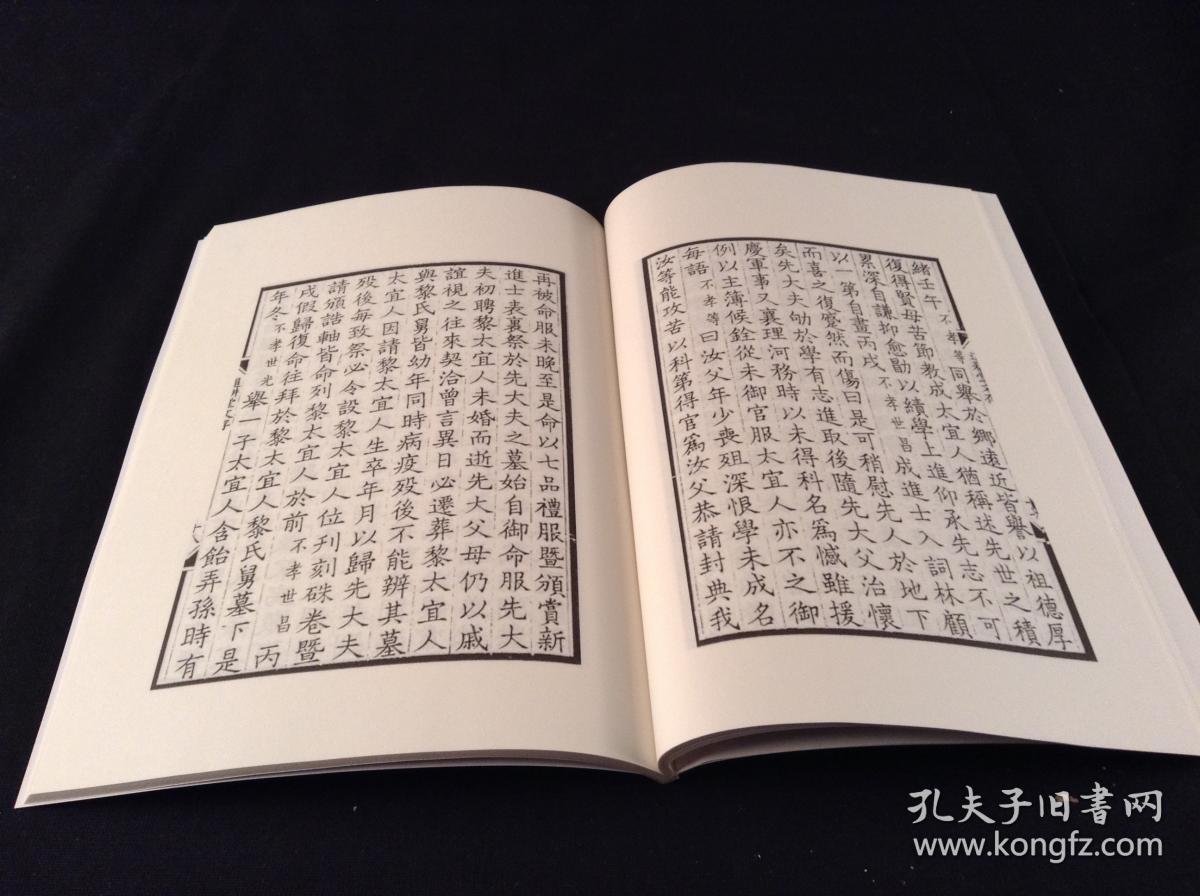 緒壬午不孝等同舉於鄉遠近皆譽以祖德厚
復得賢母苦節教成太宜人猶稱述先世之積
累深自謙抑愈勖以績學上進仰承先志不可
以一第自畫丙戌不孝世昌成進士入詞林顧
而喜之復蹙然而傷曰是可稍慰先人於地下
矣先大夫劬於學有志進取後隨先大父治懷
慶軍事又襄理河務時以未得科名爲憾雖援
例以主簿候銓從未御官服太宜人亦不之御
每語不孝等曰汝父年少喪殂深恨學未成名
汝等能攻苦以科第得官爲汝父恭請封典我
再被命服未晚至是命以七品禮服暨頒賞新
進士表裏祭於先大夫之墓始自御命服先大
夫初聘黎太宜人未婚而逝先大父母仍以戚
誼視之往來契洽曾言異日必遷葬黎太宜人
與黎氏舅皆幼年同時病疫殁後不能辨其墓
太宜人因請黎太宜人生卒年月以歸先大夫
殁後每致祭必令設黎太宜人位刊刻硃卷暨
請頒誥軸皆命列黎太宜人於前不孝世昌丙
戌假歸復命往拜於黎太宜人黎氏舅墓下是
年冬不孝世光舉一子太宜人含飴弄孫時有
孔夫子旧书网
www.kongfz.com